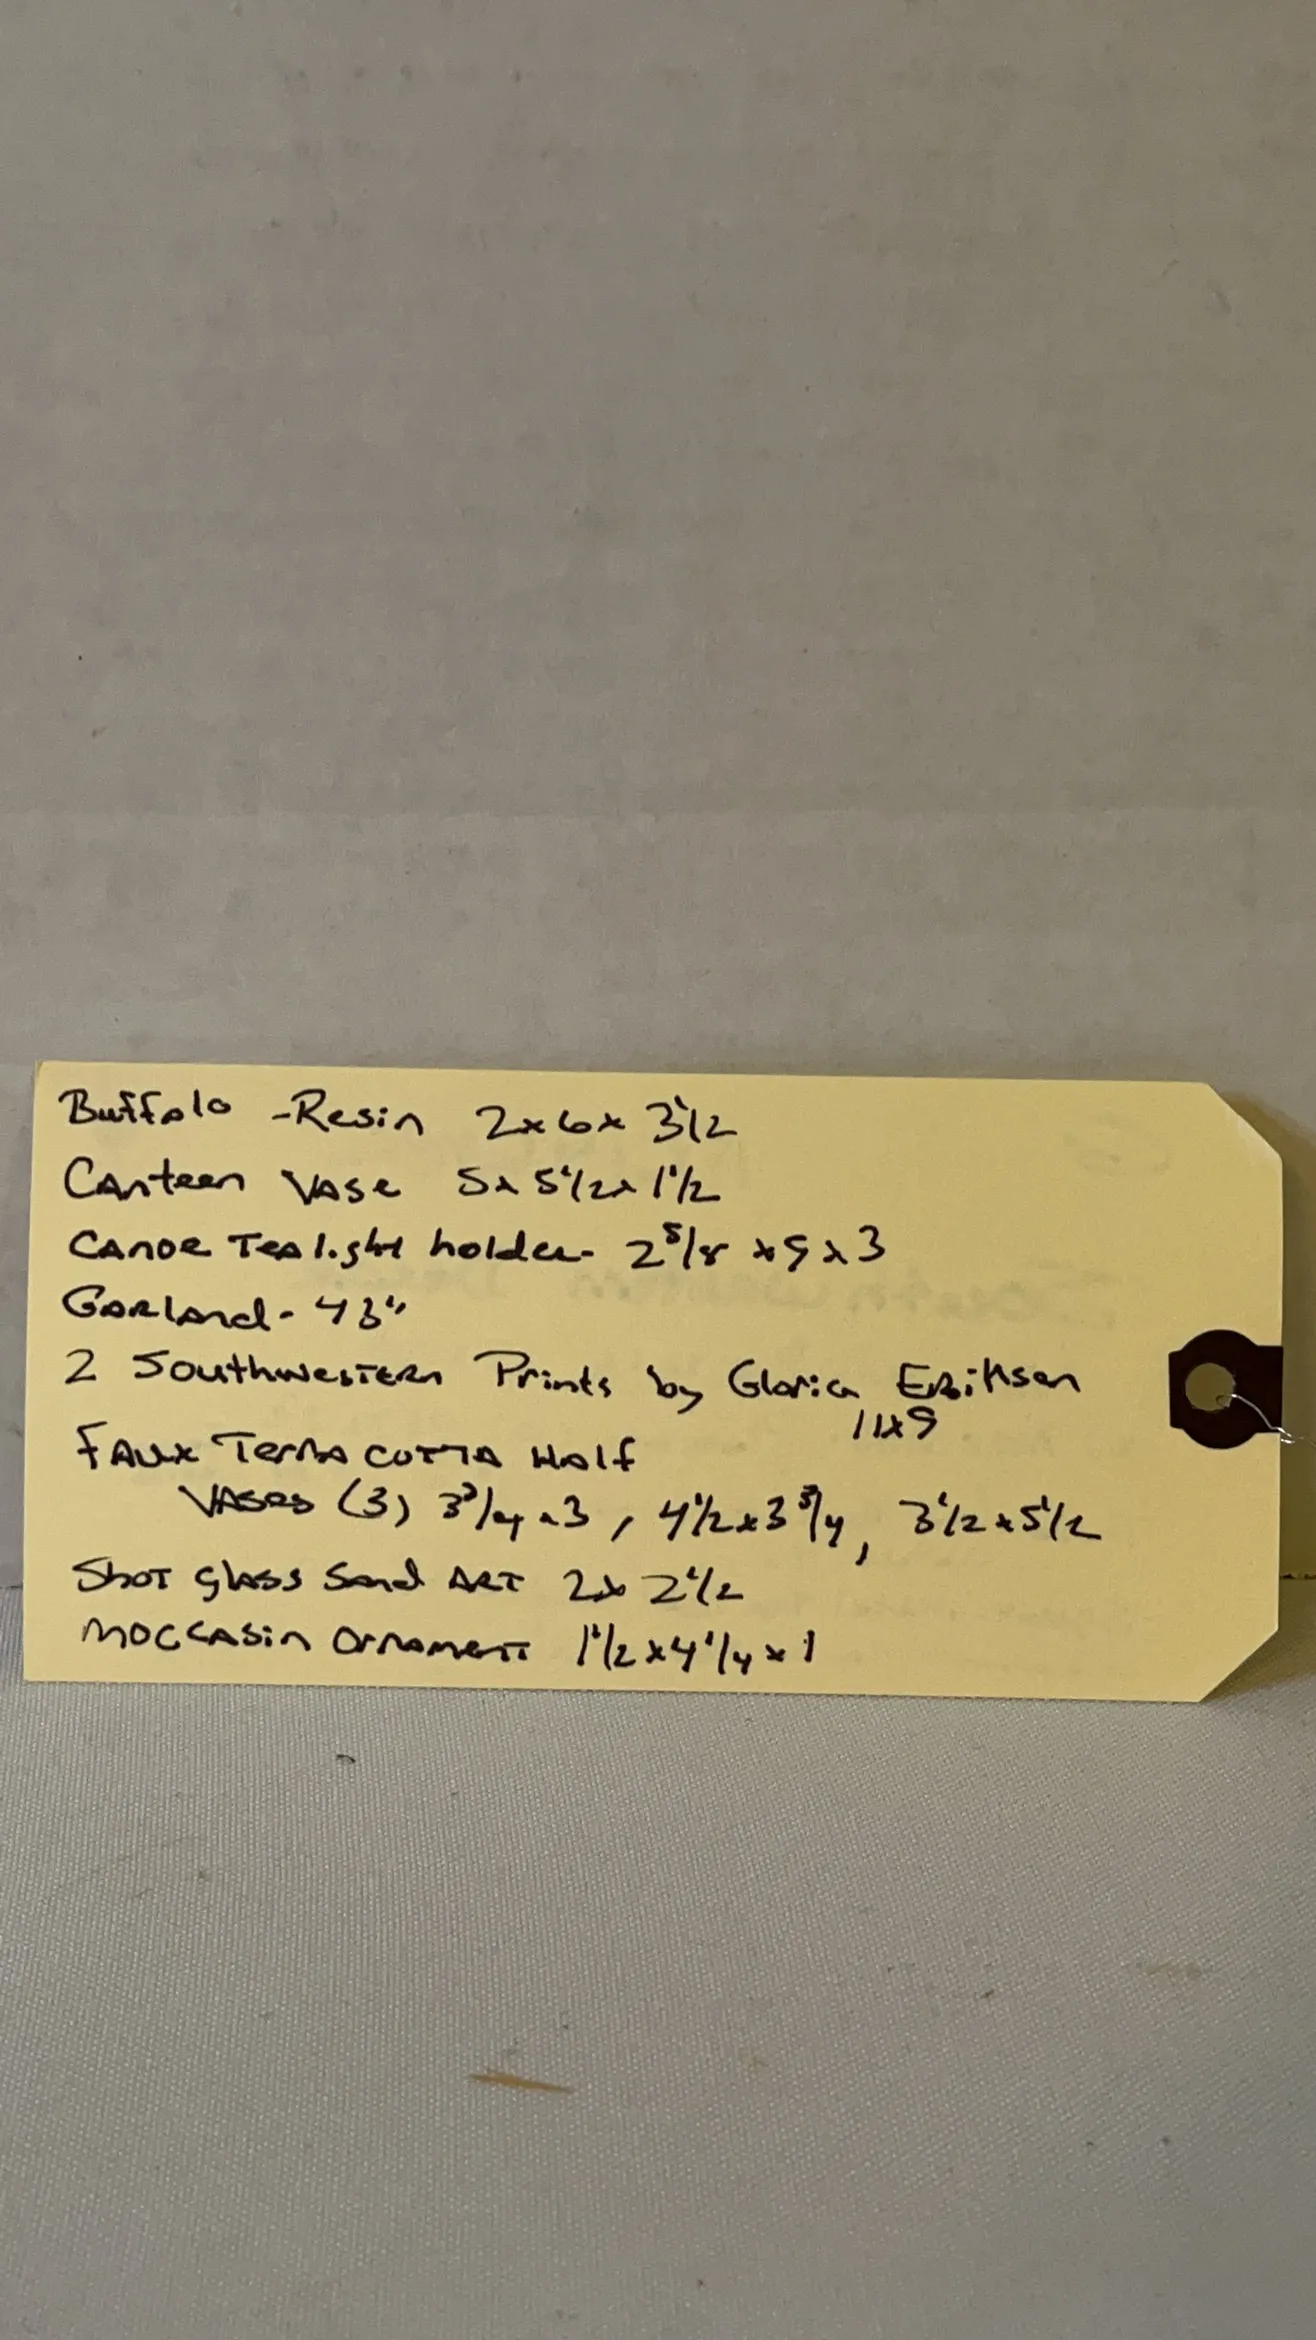 Buffalo - Resin 2x6x 3 1/2
Canteen Vase 5x 5 1/2 x 1 1/2
Canoe Tealight holder - 2 5/8 x 9 x 3
Garland - 43"
2 Southwestern Prints by Gloria Eriksen
11x9
Faux Terra cotta Half
Vases (3) 3 3/4 x 3, 4 1/2 x 3 3/4, 3 1/2 x 5 1/2
Shot glass Sand Art 2x 2 1/2
Moccasin Ornament 1 1/2 x 4 1/4 x 1